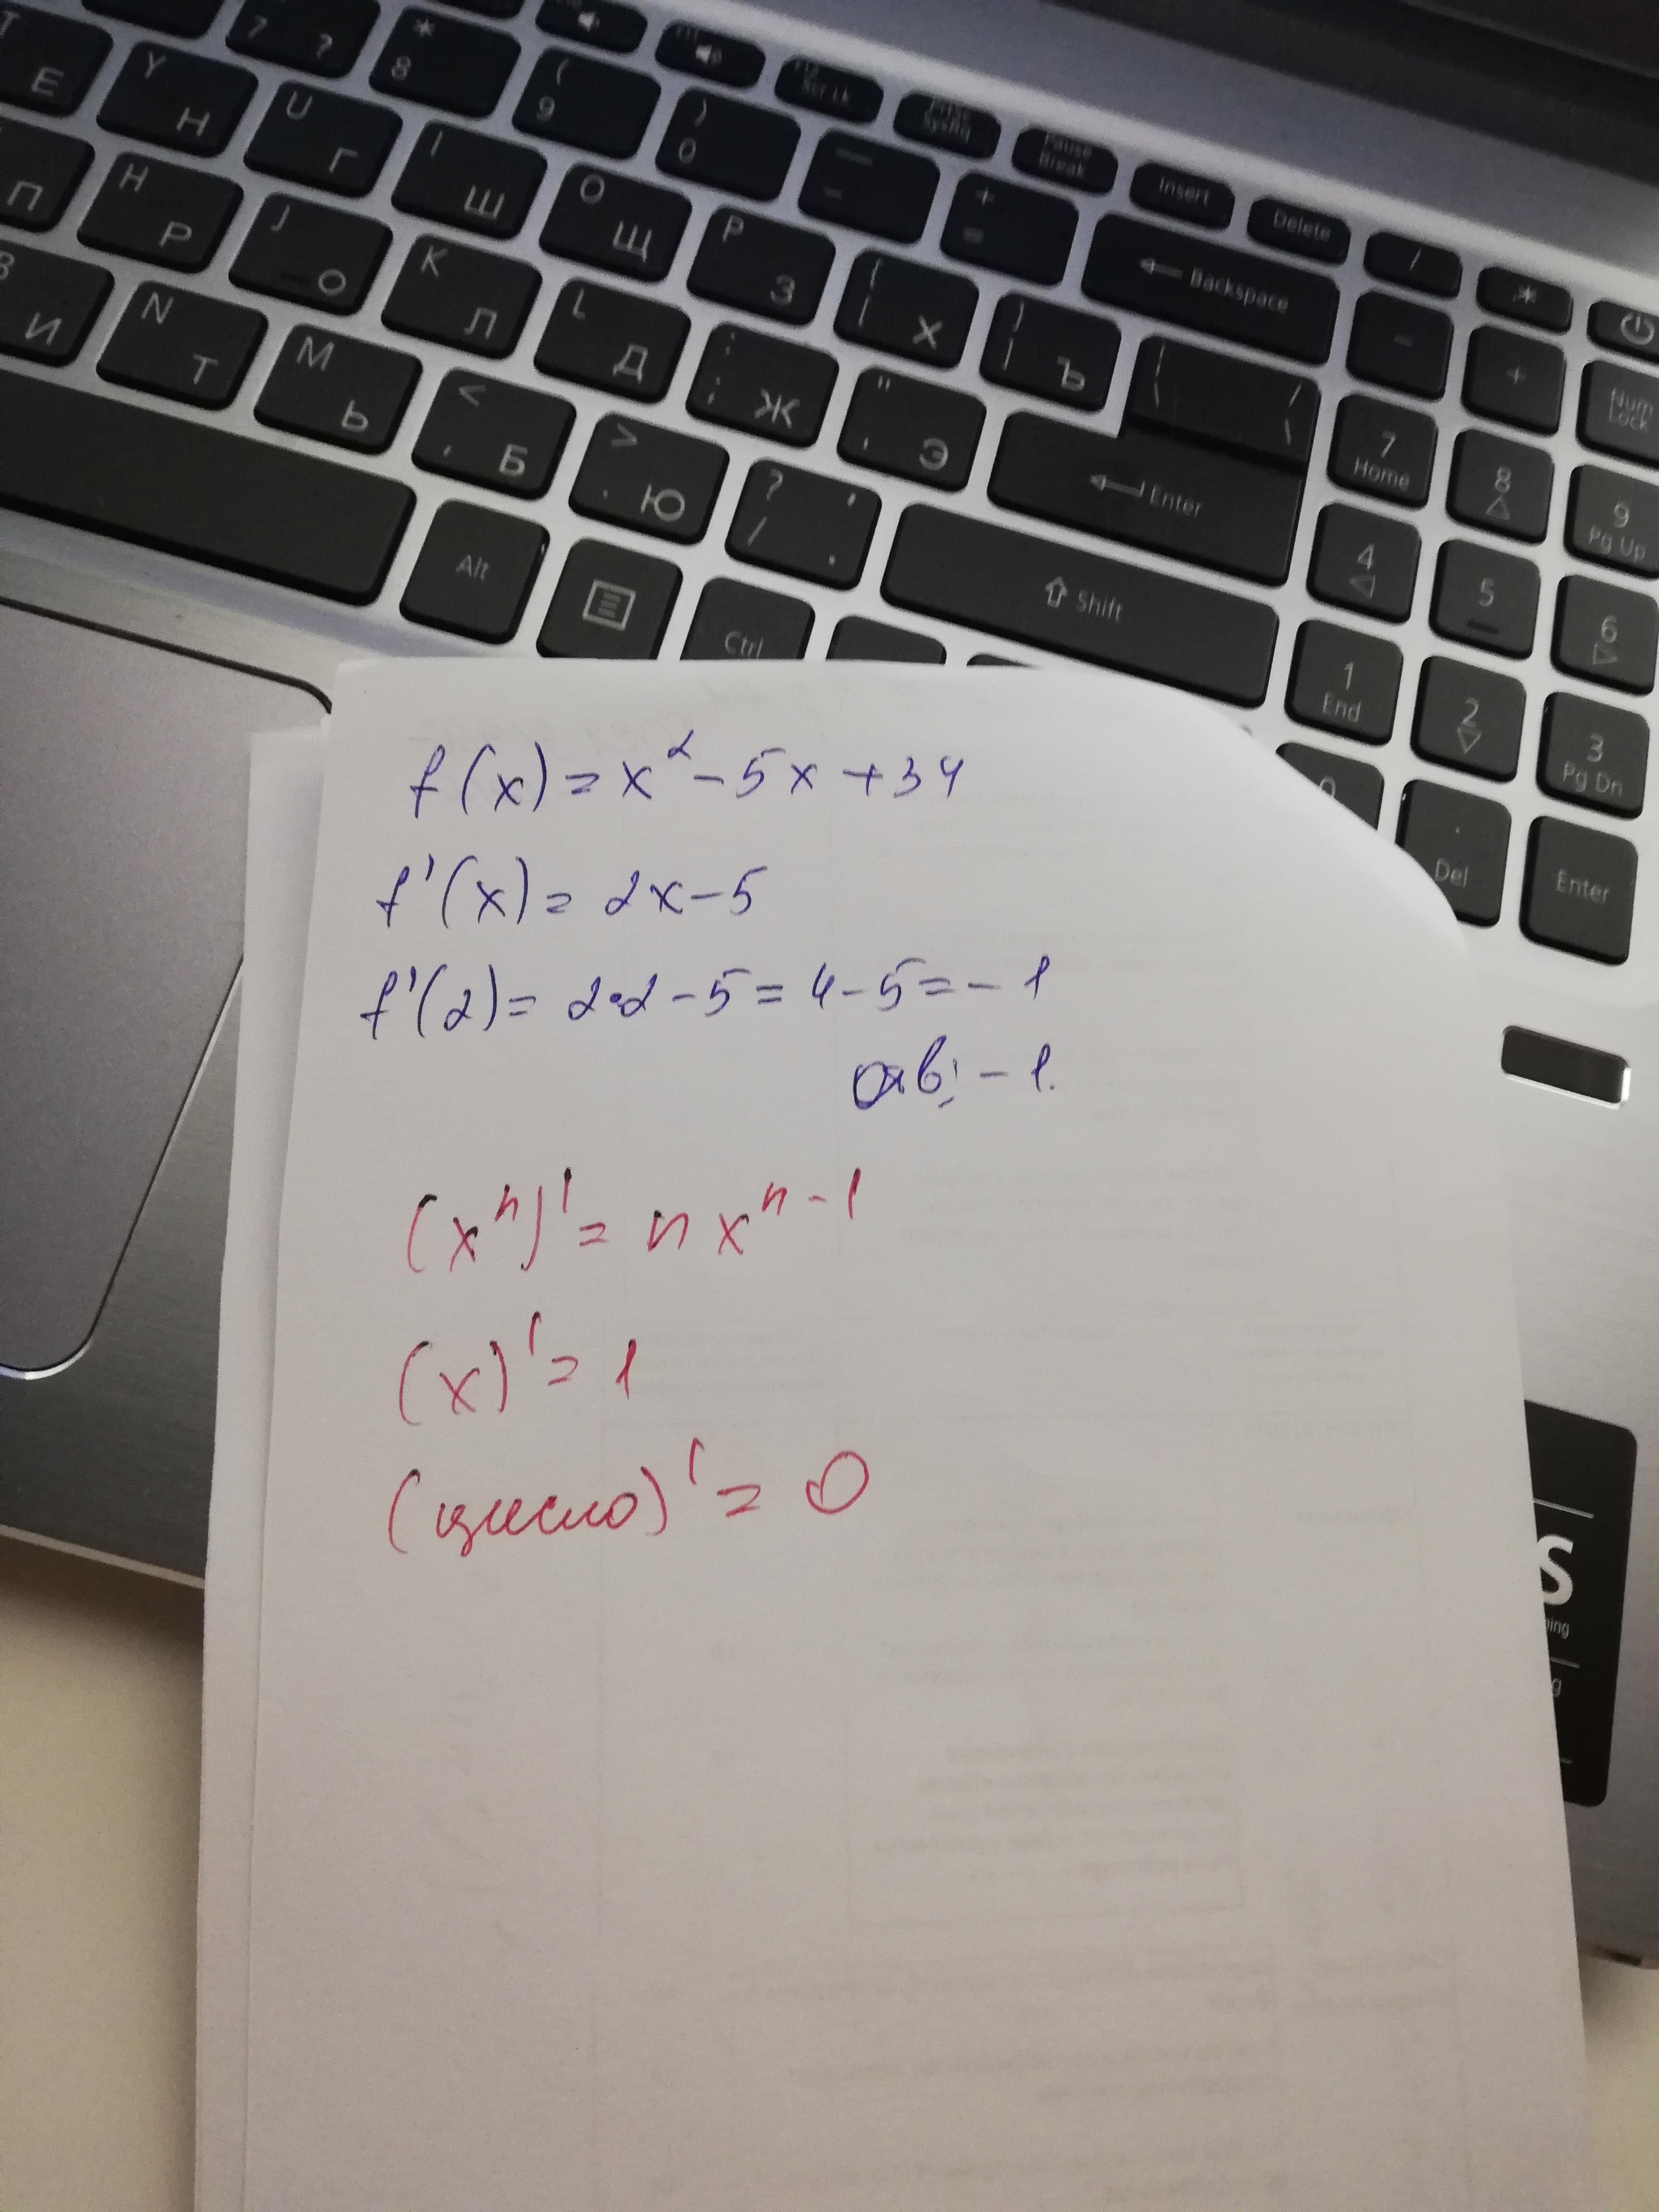 ? ? * 8 ( 9 ) 0 — - + = ← Backspace
Scr Lk SysRq Pause Break Insert Delete / *
Е Y Н U Г I Ш O Щ P З { [ Х } ] Ъ | \ / \
- + Num Lock
П H Р J О K Л L Д : ; Ж " ' Э ← Enter
7 Home 8 9 Pg Up
В И N Т M Ь < , Б > . Ю ? / , . ⇧ Shift
4 5 6
Alt Ctrl
1 End 2 3 Pg Dn
0 . Del Enter
f(x) = x² - 5x + 34
f'(x) = 2x - 5
f'(2) = 2·2 - 5 = 4 - 5 = - 1
Отв: - 1.
(xⁿ)' = n xⁿ⁻¹
(x)' = 1
(число)' = 0
S